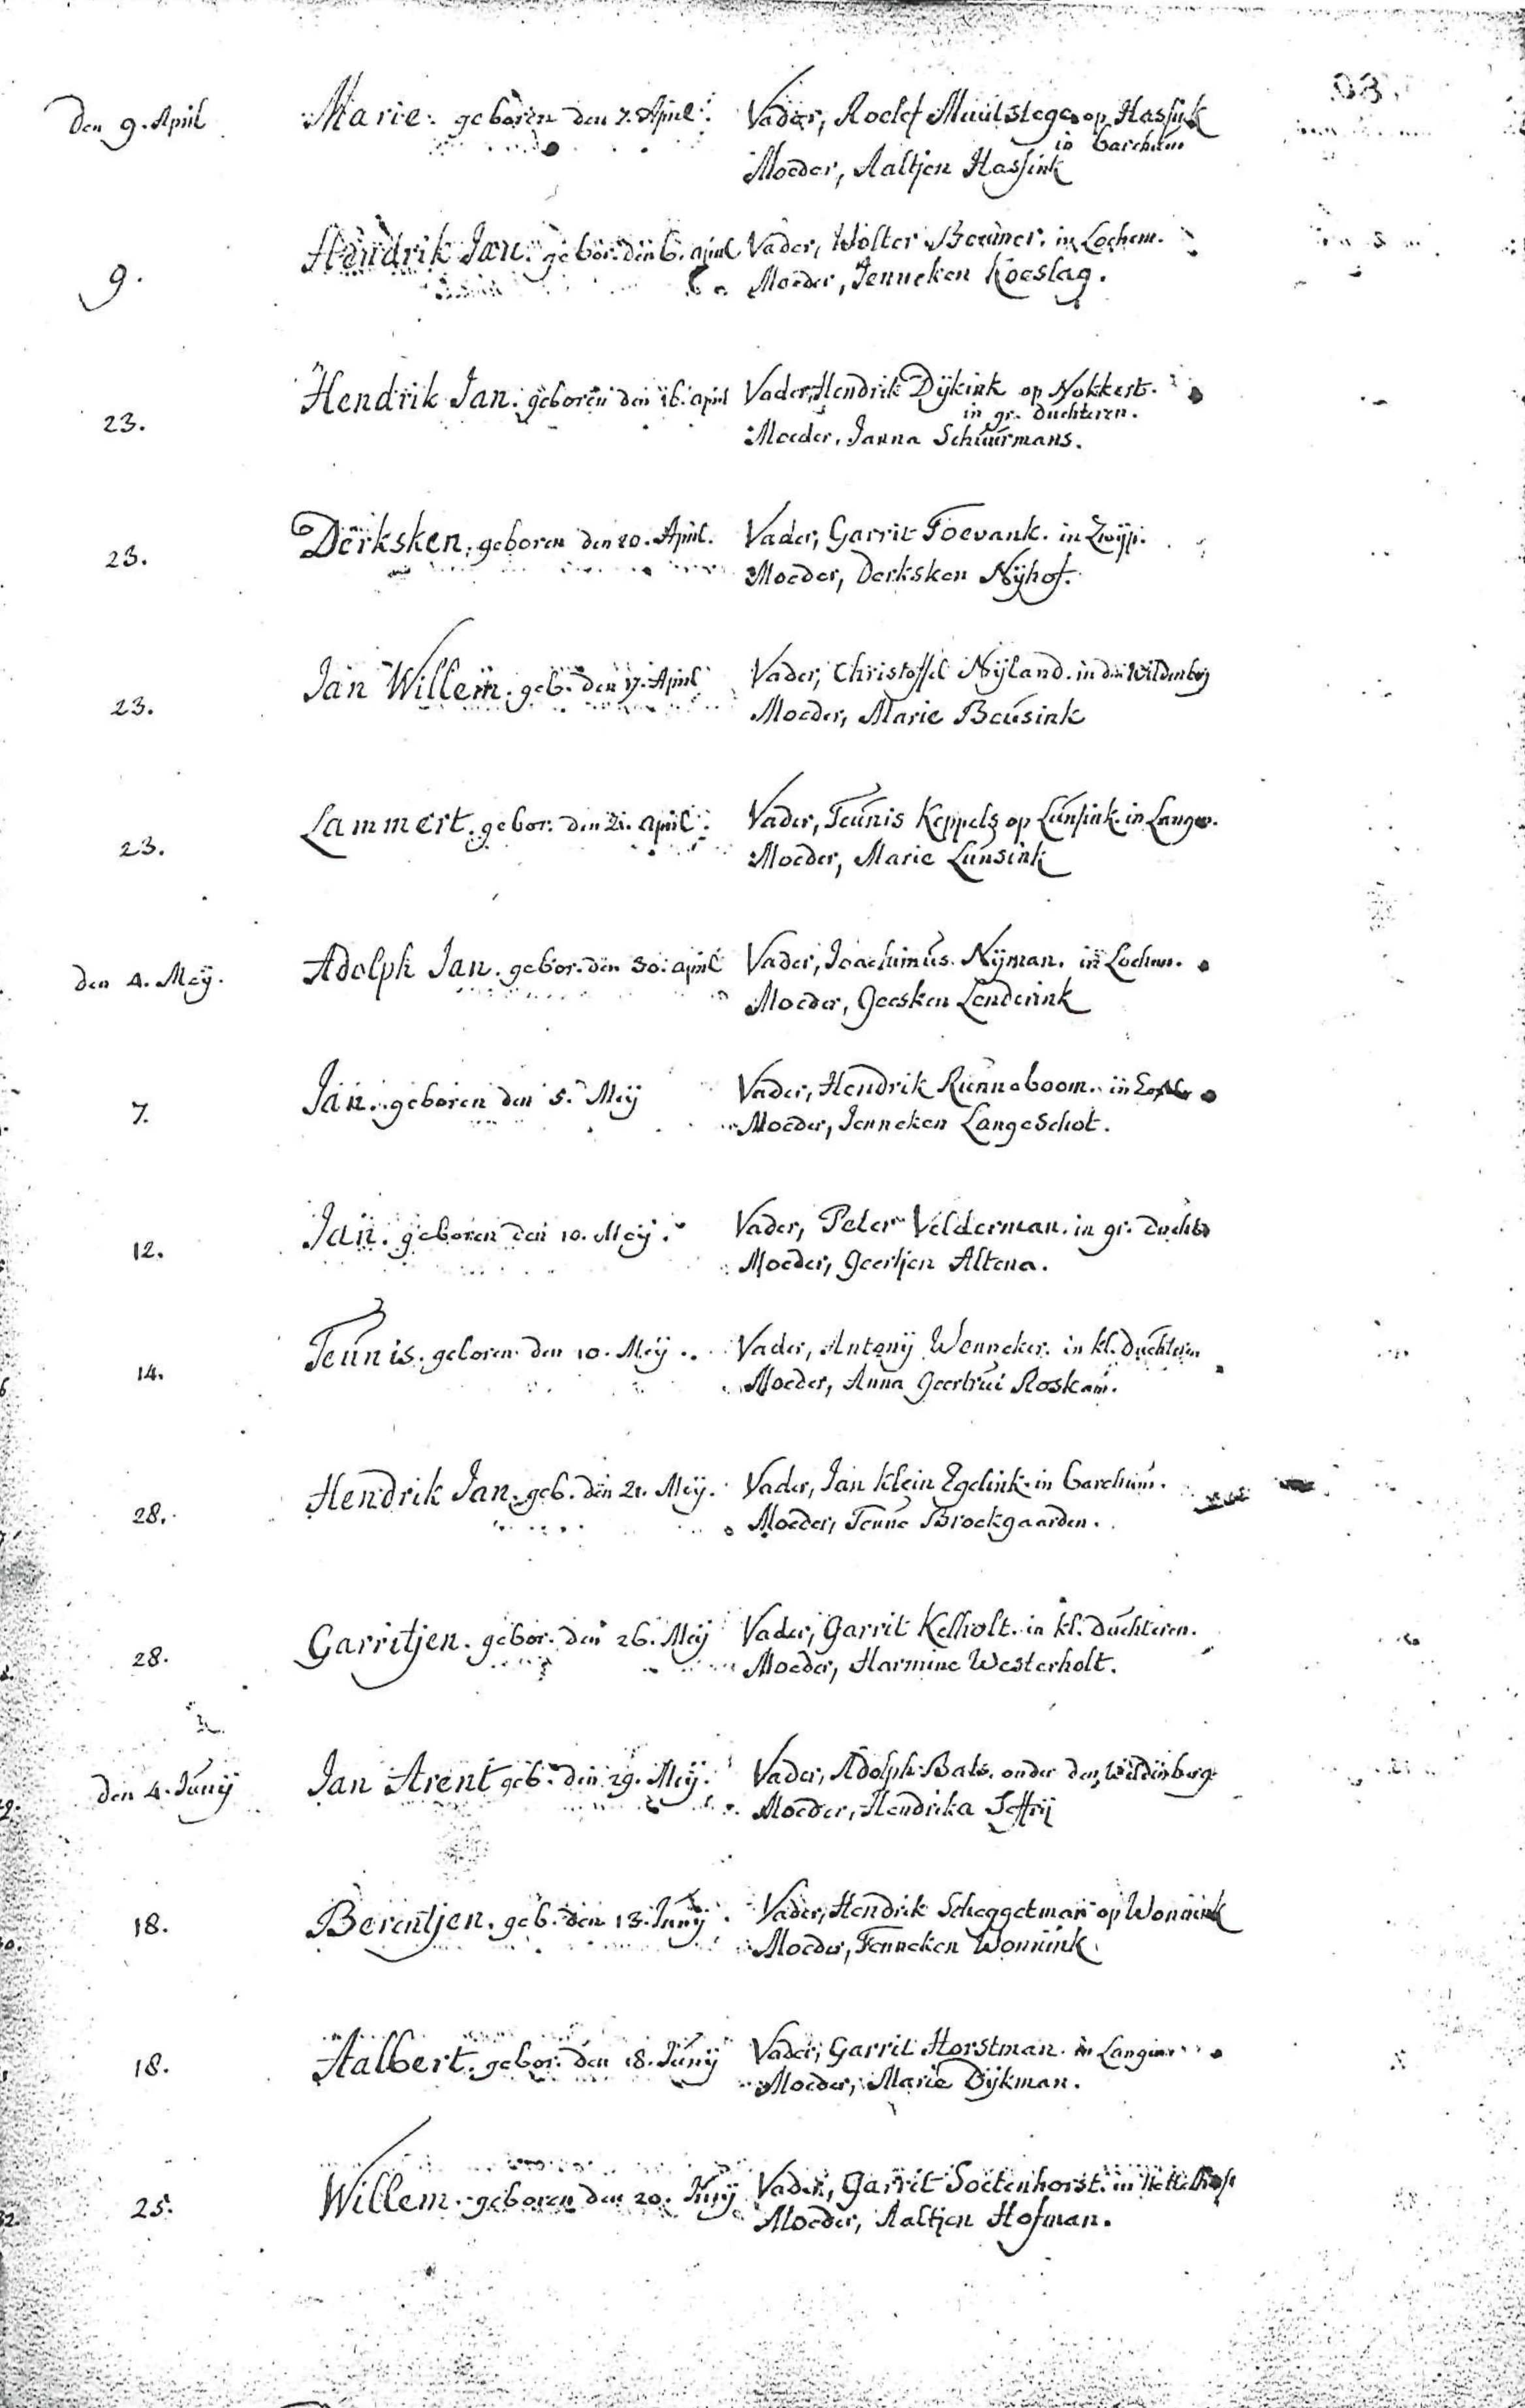 93.
Den 9. April Marie. geboren den 7. April. Vader, Roelof Muilstege op Hassink
in Barchem
Moeder, Aaltjen Hassink
9. Hendrik Jan. gebor. den 6. april Vader, Wolter Beumer. in Lochem.
Moeder, Jenneken Koeslag.
23. Hendrik Jan. geboren den 16. april Vader, Hendrik Dijkink op Nokkert.
in gr. Duchteren.
Moeder, Janna Schuurmans.
23. Derksken. geboren den 20. April. Vader, Garrit Toevank. in Zwijp.
Moeder, Derksken Nijhof.
23. Jan Willem. geb. den 17. April Vader, Christoffel Nijland. in den Wildenborg
Moeder, Marie Beusink
23. Lammert. gebor. den 21. april. Vader, Teunis Keppels op Lunsink. in Langen.
Moeder, Marie Lunsink
den 4. Meij. Adolph Jan. gebor. den 30. april Vader, Joachimus Nijman. in Lochem.
Moeder, Geesken Lenderink
7. Jan. geboren den 5. Meij Vader, Hendrik Runneboom. in
Moeder, Jenneken Langeschot.
12. Jan. geboren den 10. Meij. Vader, Peter Velderman. in gr. Duchte
Moeder, Geertjen Altena.
14. Teunis. geboren den 10. Meij. Vader, Antonij Wenneker. in kl. Duchteren
Moeder, Anna Geertrui Roskam.
28. Hendrik Jan. geb. den 21. Meij. Vader, Jan klein Egelink. in Barchem.
Moeder, Tenne Broekgaarden.
28. Garritjen. gebor. den 26. Meij Vader, Garrit Kelholt. in kl. Duchteren.
Moeder, Harmine Westerholt.
den 4. Junij Jan Arent geb. den 29. Meij. Vader, Adolph Bats. onder den Wildenborg
Moeder, Hendrika Jeffrij
18. Berentjen. geb. den 13. Junij. Vader, Hendrik Scheggetman op Wonnink
Moeder, Fenneken Wonnink.
18. Aalbert. gebor. den 18. Junij Vader, Garrit Horstman. in Langen
Moeder, Marie Dijkman.
25. Willem. geboren den 20. Junij Vader, Garrit Soetenhorst. in
Moeder, Aaltjen Hofman.